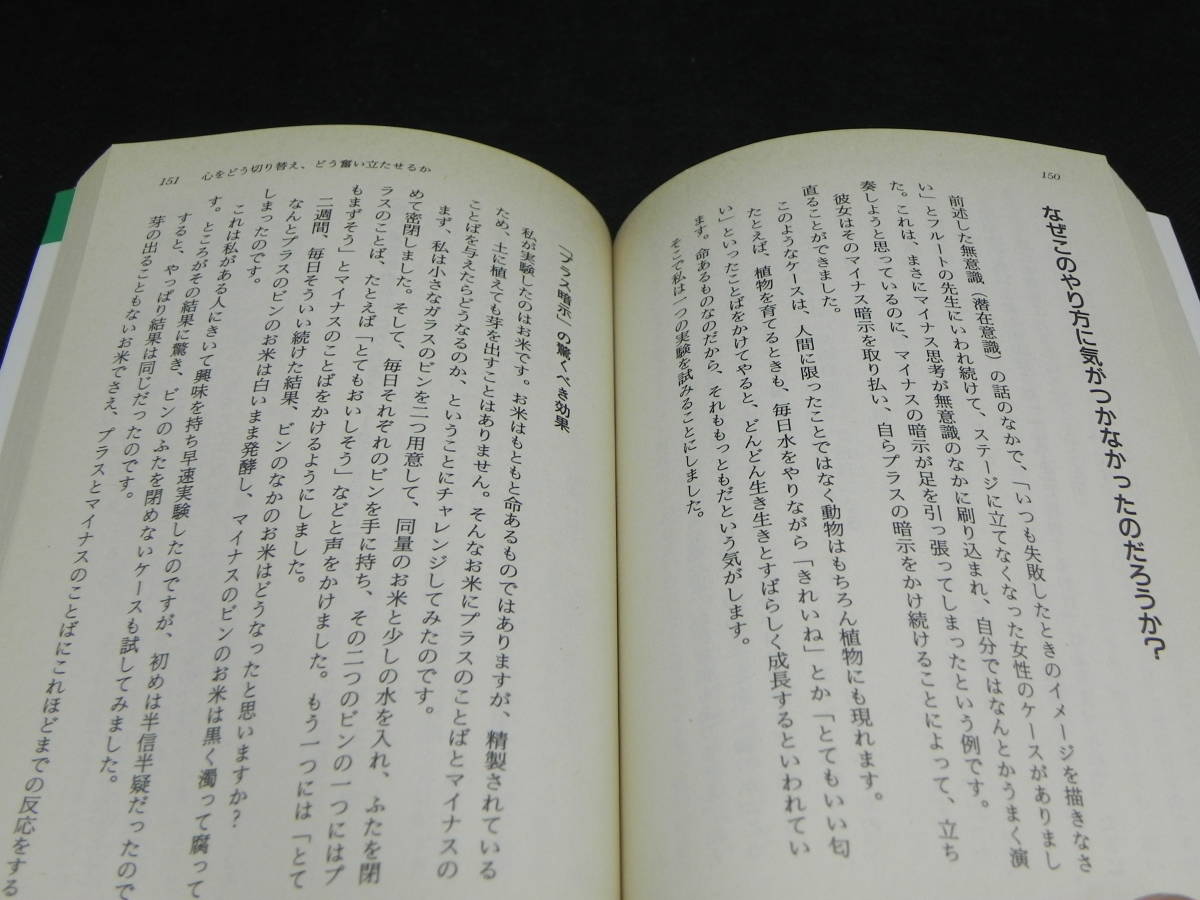 150
なぜこのやり方に気がつかなかったのだろうか?
前述した無意識（潜在意識）の話のなかで、「いつも失敗したときのイメージを描きなさ
い」とフルートの先生にいわれ続けて、ステージに立てなくなった女性のケースがありまし
た。これは、まさにマイナス思考が無意識のなかに刷り込まれ、自分ではなんとかうまく演
奏しようと思っているのに、マイナスの暗示が足を引っ張ってしまったという例です。
彼女はそのマイナス暗示を取り払い、自らプラスの暗示をかけ続けることによって、立ち
直ることができました。
このようなケースは、人間に限ったことではなく動物はもちろん植物にも現れます。
たとえば、植物を育てるときも、毎日水をやりながら「きれいね」とか「とてもいい匂
い」といったことばをかけてやると、どんどん生き生きとすばらしく成長するといわれてい
ます。命あるものなのだから、それももっともだという気がします。
そこで私は一つの実験を試みることにしました。
151 心をどう切り替え、どう奮い立たせるか
「プラス暗示」の驚くべき効果
私が実験したのはお米です。お米はもともと命あるものではありますが、精製されている
ため、土に植えても芽を出すことはありません。そんなお米にプラスのことばとマイナスの
ことばを与えたらどうなるのか、ということにチャレンジしてみたのです。
まず、私は小さなガラスのビンを二つ用意して、同量のお米と少しの水を入れ、ふたを閉
めて密閉しました。そして、毎日それぞれのビンを手に持ち、その二つのビンの一つにはプ
ラスのことば、たとえば「とてもおいしそう」などと声をかけました。もう一つには「とて
もまずそう」とマイナスのことばをかけるようにしました。
二週間、毎日そういい続けた結果、ビンのなかのお米はどうなったと思いますか?
なんとプラスのビンのお米は白いまま発酵し、マイナスのビンのお米は黒く濁って腐って
しまったのです。
これは私がある人にきいて興味を持ち早速実験したのですが、初めは半信半疑だったので
す。ところがその結果に驚き、ビンのふたを閉めないケースも試してみました。
すると、やっぱり結果は同じだったのです。
芽の出ることもないお米でさえ、プラスとマイナスのことばにこれほどまでの反応をする